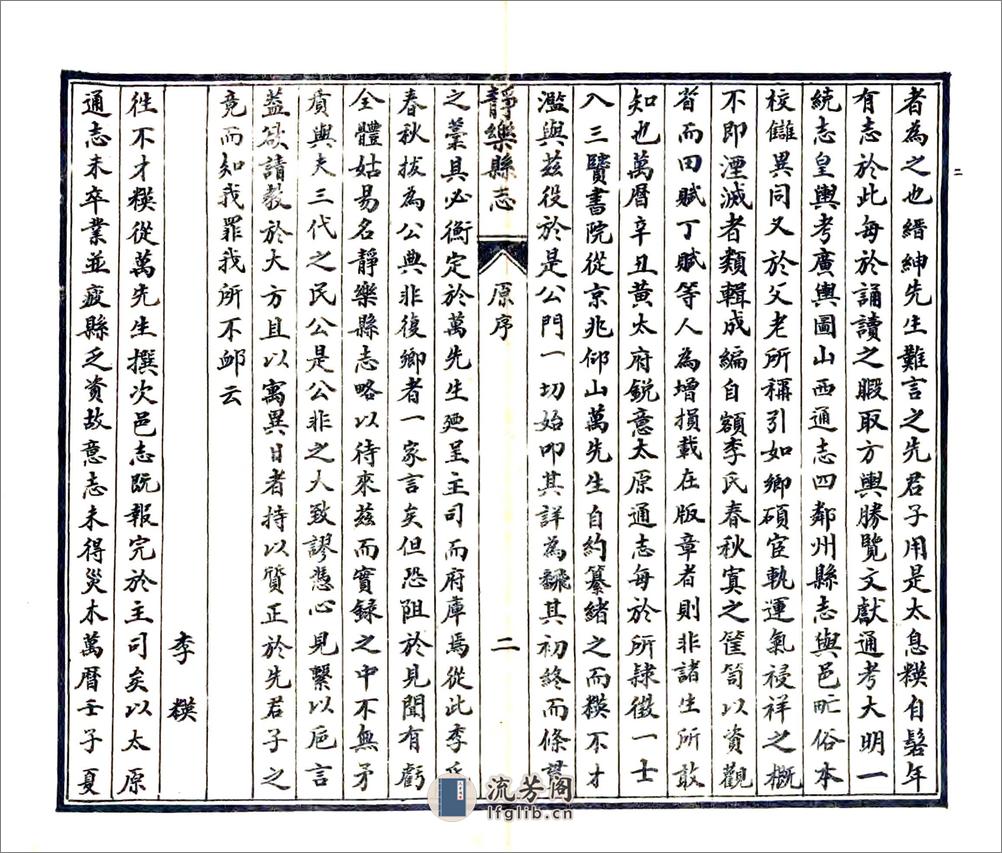 者為之也縉紳先生難言之先君子用是太息㰖自髫年
有志於此每於誦讀之暇取方輿勝覽文獻通考大明一
統志皇輿考廣輿圖山西通志四鄰州縣志與邑甿俗本
校讎異同又於父老所稱引如鄉碩宦軌運氣祲祥之概
不即湮滅者類輯成編自額李氏春秋寘之筐笥以資觀
省而田賦丁賦等人為增損載在版章者則非諸生所敢
知也萬曆辛丑黃太府銳意太原通志每於所隸徵一士
入三賢書院從京兆仰山萬先生自約纂緒之而㰖不才
濫與茲役於是公門一切始叩其詳為飜其初終而條貫
靜樂縣志
原序
二
之藁具必衡定於萬先生廼呈主司而府庫焉從此李氏
春秋拔為公典非復鄉者一家言矣但恐阻於見聞有虧
全體姑易名靜樂縣志略以待來茲而實錄之中不無矛
盾與夫三代之民公是公非之人致謬憑心見繫以巵言
蓋欲請教於大方且以寓異日者持以質正於先君子之
竟而知我罪我所不䘏云
李㰖
徃不才㰖從萬先生撰次邑志既報完於主司矣以太原
通志未卒業並疲縣乏資故意志未得災木萬曆壬子夏
二
流芳阁
lfglib.cn